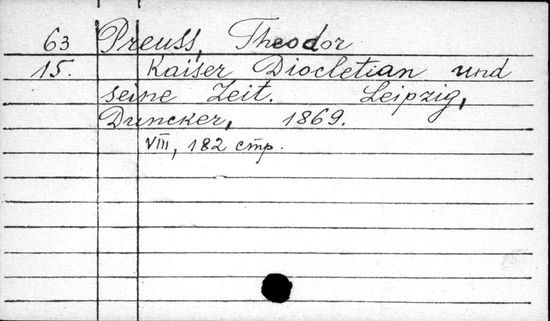 63 Preuss, Theodor
15. Kaiser Diocletian und
seine Zeit. Leipzig,
Duncker, 1869.
VIII, 182 cmp.